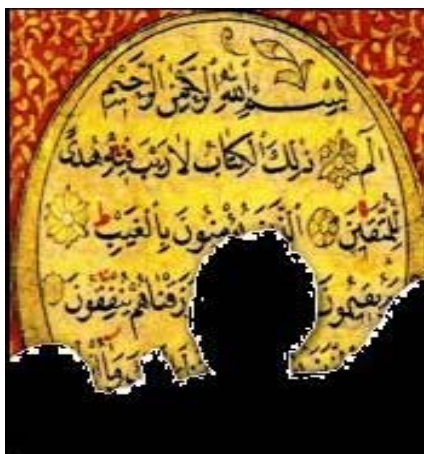 بِسْمِ اللَّهِ الرَّحْمٰنِ الرَّحِيمِ
الم ذٰلِكَ الْكِتَابُ لَا رَيْبَ فِيهِ هُدًى
لِلْمُتَّقِينَ الَّذِينَ يُؤْمِنُونَ بِالْغَيْبِ
وَيُقِيمُونَ رَزَقْنَاهُمْ يُنْفِقُونَ
وَمَا